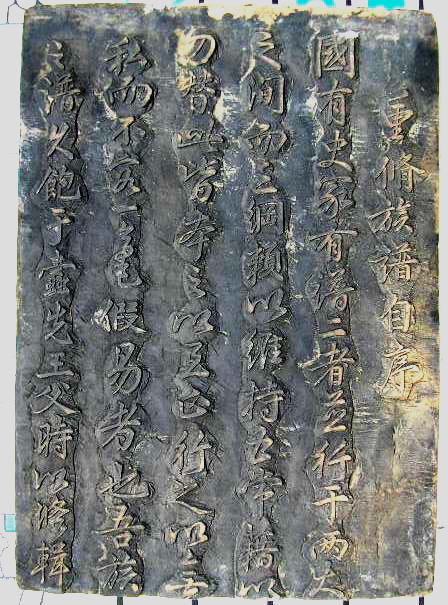 重脩族譜自序
國有史家有譜二者並行于兩大
之間而三綱賴以維持五常藉以
勿替此皆本之以至正行之以至
私而不容一毫假易者也吾族
之譜久飽于蠹先王父時以修輯